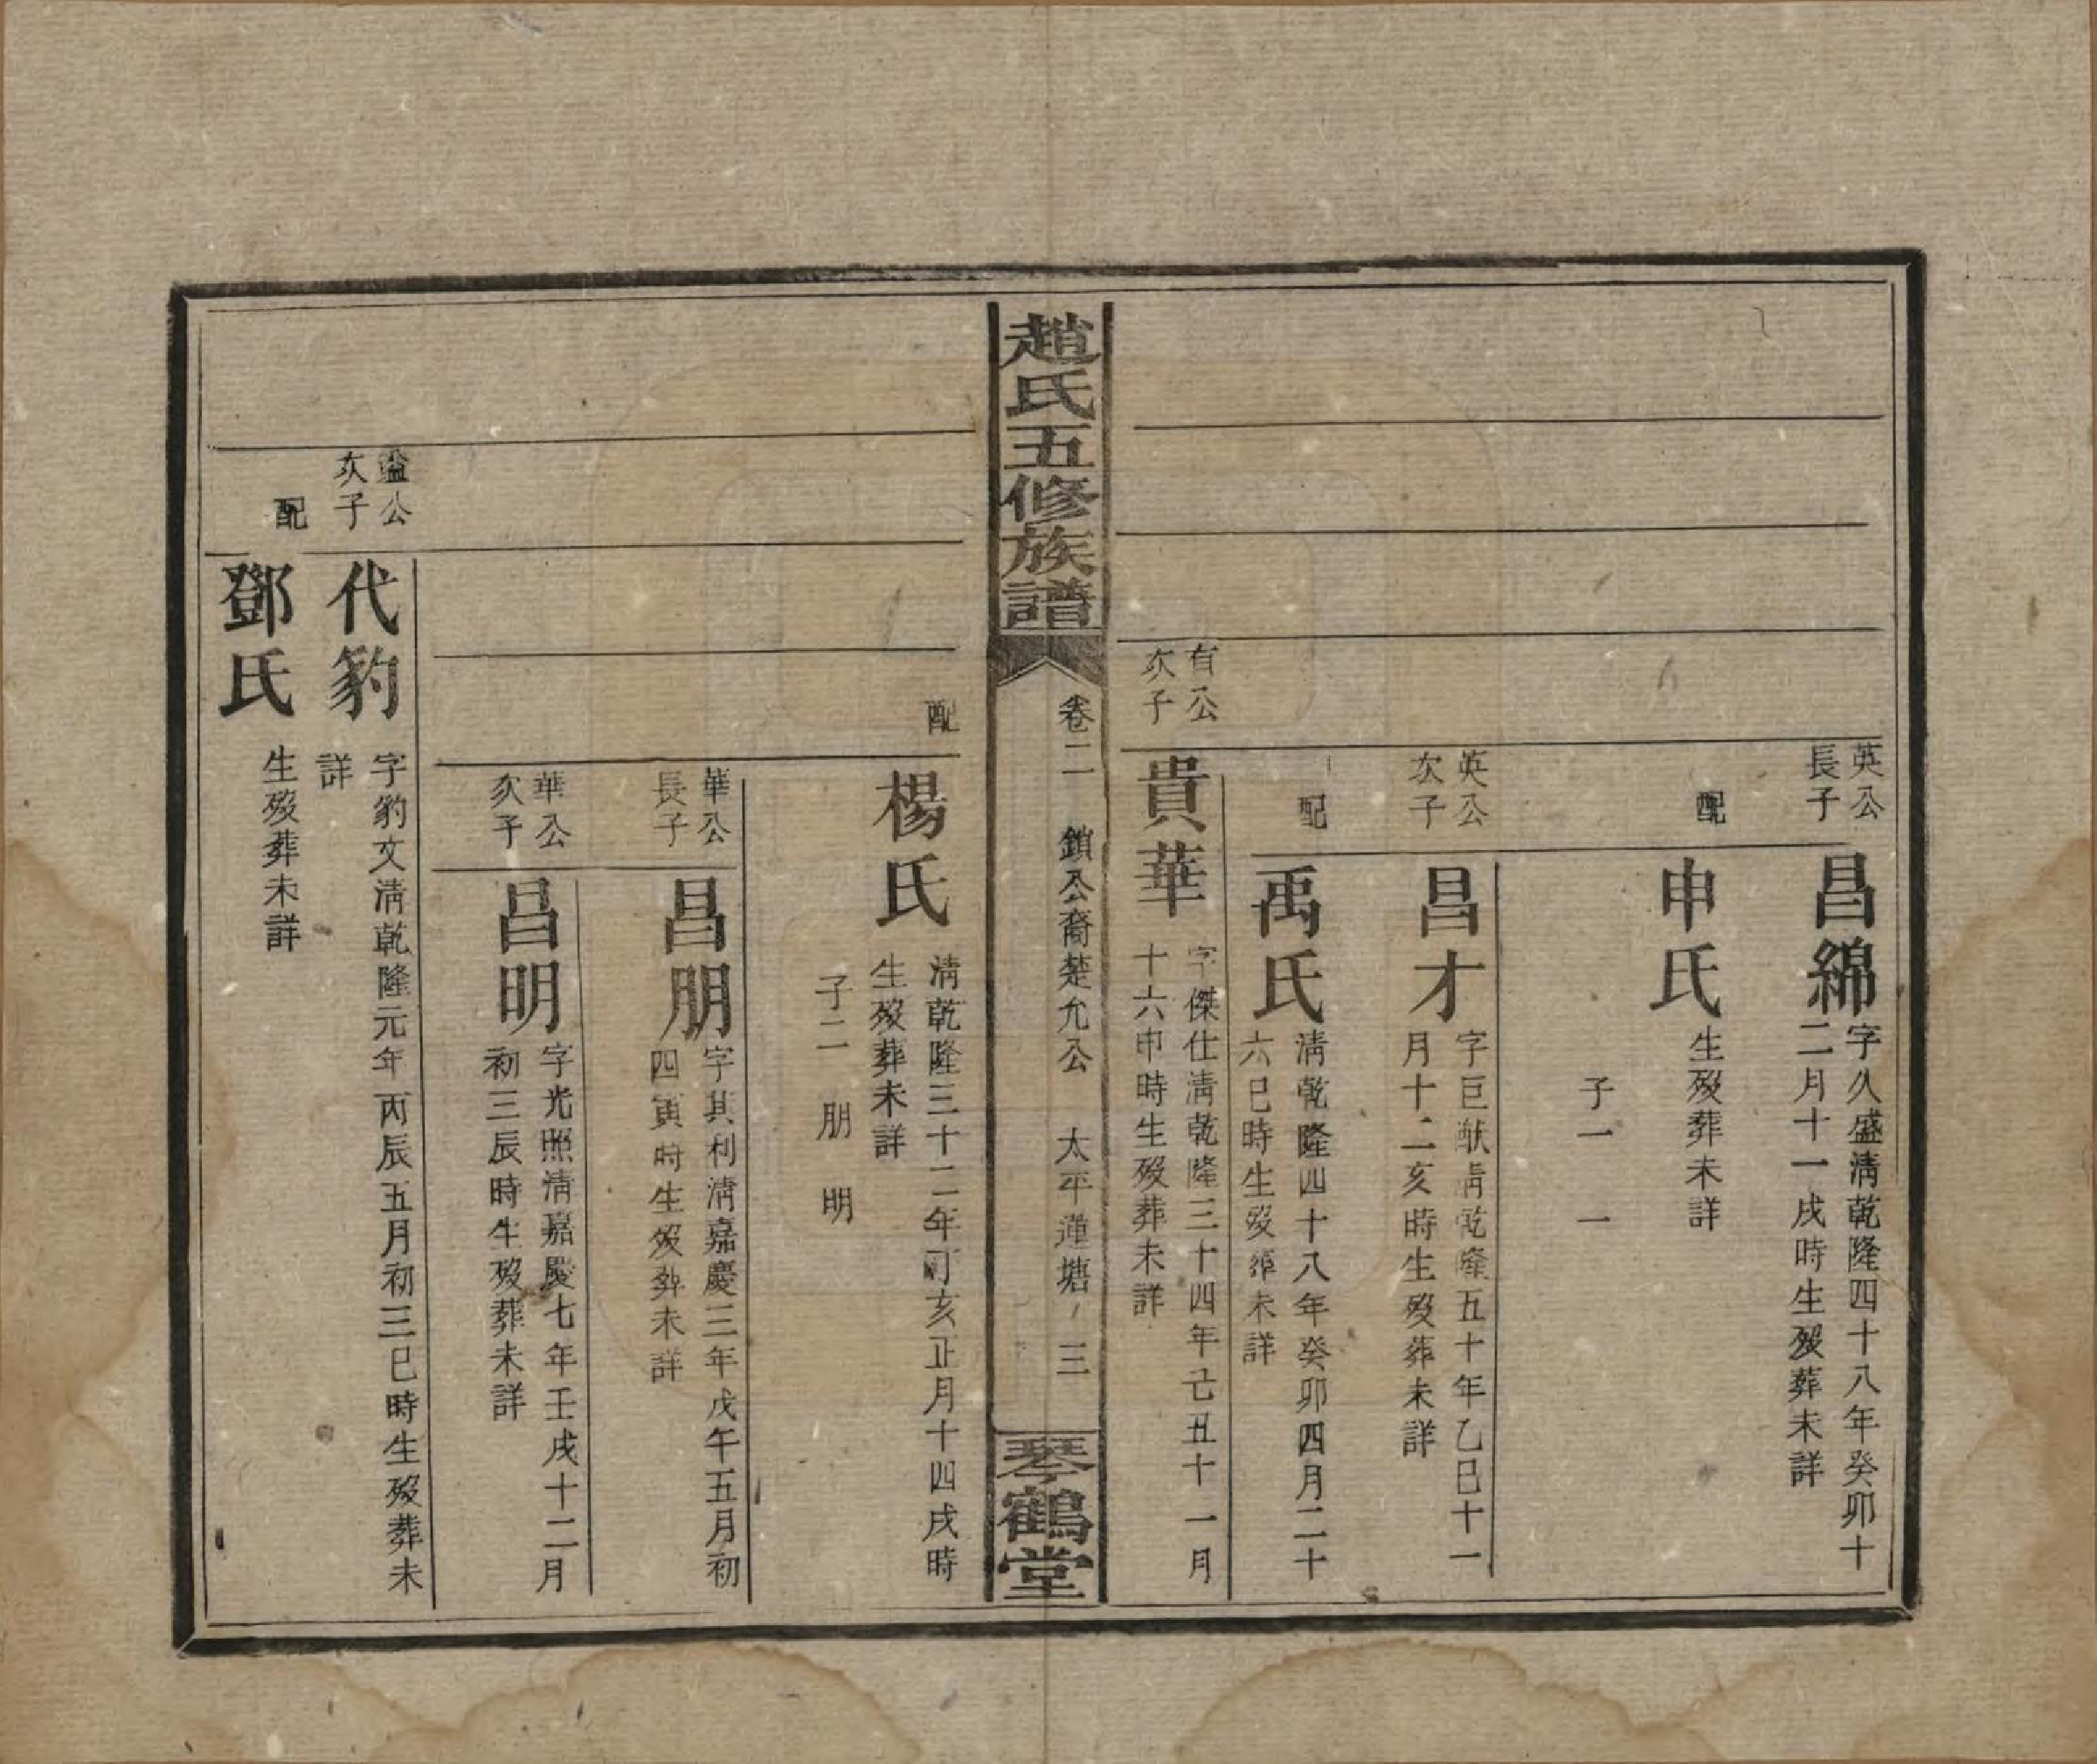 英公
長子
昌綿
字久盛淸乾隆四十八年癸卯十
二月十一戌時生歿葬未詳
配
申氏
生歿葬未詳
子一 一
英公
次子
昌才
字巨猷淸乾隆五十年乙巳十一
月十二亥時生歿葬未詳
配
禹氏
淸乾隆四十八年癸卯四月二十
六巳時生歿葬未詳
有公
次子
貴華
字傑仕淸乾隆三十四年己丑十一月
十六申時生歿葬未詳
趙氏五修族譜
卷二 鎖公裔楚允公 太平蓮塘 三
琴鶴堂
配
楊氏
淸乾隆三十二年丁亥正月十四戌時
生歿葬未詳
子二 朋 明
華公
長子
昌朋
字其利淸嘉慶三年戊午五月初
四寅時生歿葬未詳
華公
次子
昌明
字光照淸嘉慶七年壬戌十二月
初三辰時生歿葬未詳
公
次子
代豹
字豹文淸乾隆元年丙辰五月初三巳時生歿葬未
詳
配
鄧氏
生歿葬未詳